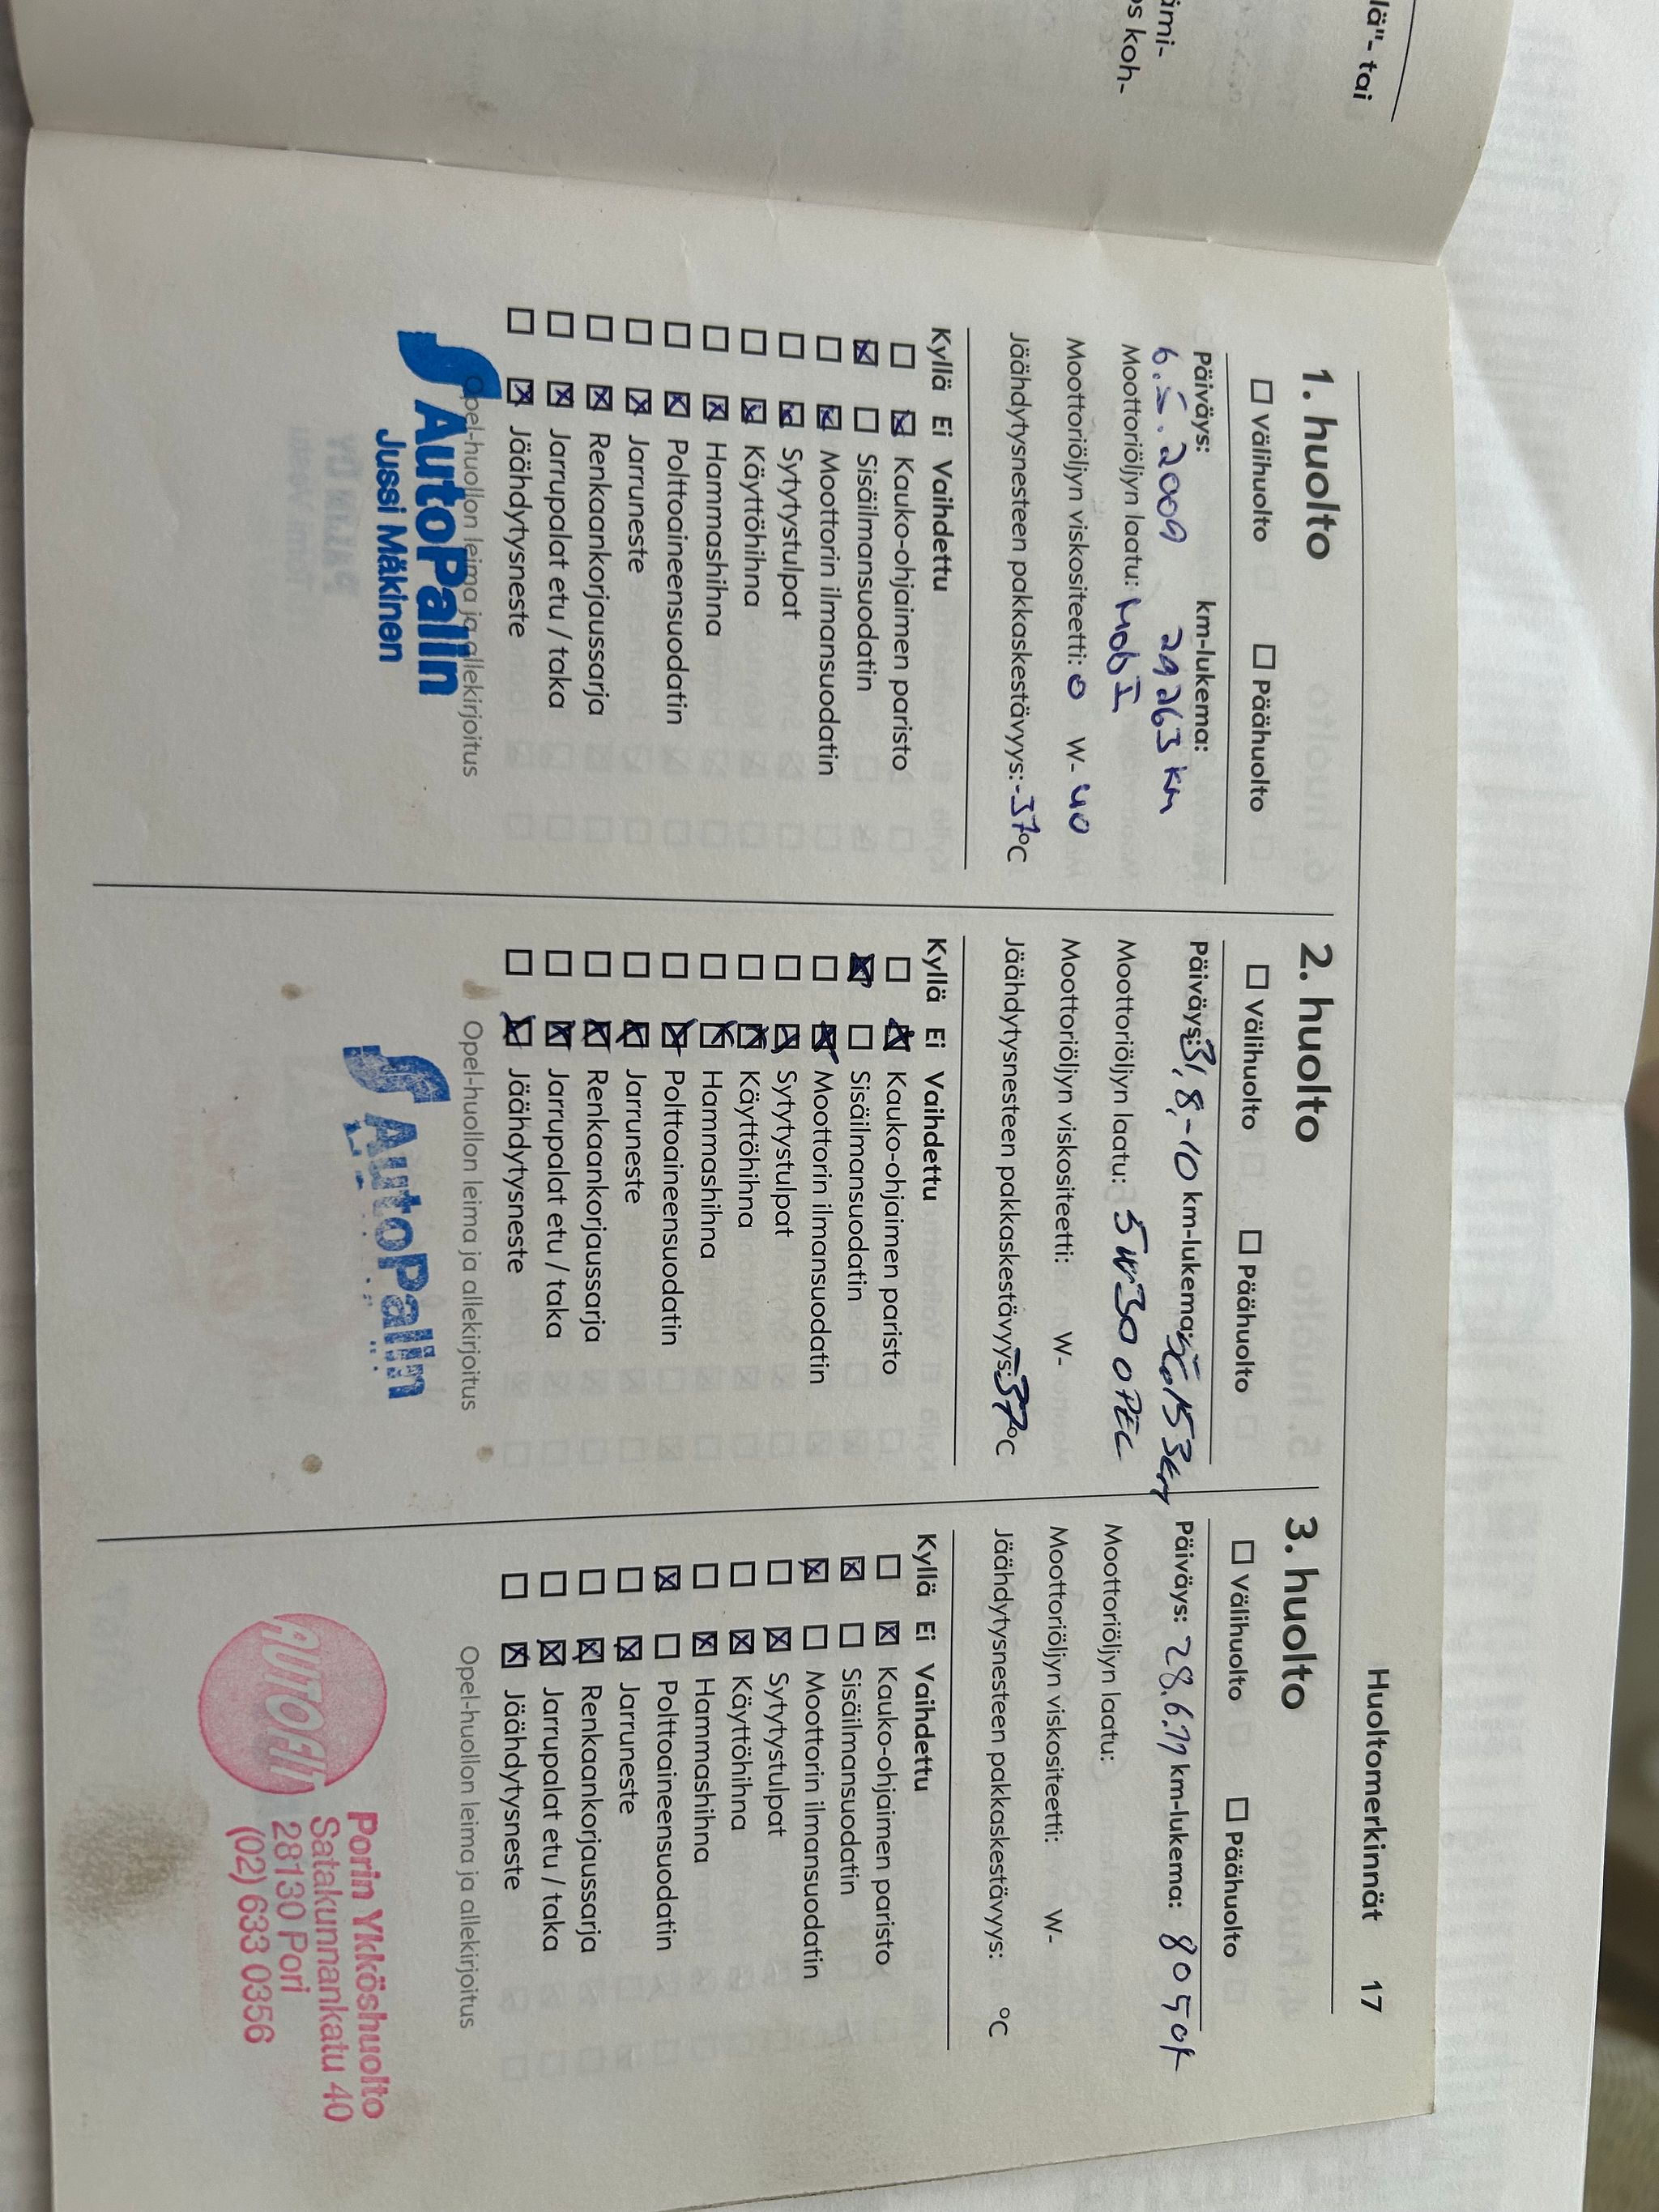 lä"- tai
ämi-
s koh-
Huoltomerkinnät 17
1. huolto
☐ Välihuolto ☐ Päähuolto
Päiväys: km-lukema:
6.5.2009 29263 km
Moottoriöljyn laatu: Mob I
Moottoriöljyn viskositeetti: 0 W- 40
Jäähdytysnesteen pakkaskestävyys: -37°C
Kyllä Ei Vaihdettu
☐ ☒ Kauko-ohjaimen paristo
☒ ☐ Sisäilmansuodatin
☐ ☒ Moottorin ilmansuodatin
☐ ☒ Sytytystulpat
☐ ☒ Käyttöhihna
☐ ☒ Hammashihna
☐ ☒ Polttoaineensuodatin
☐ ☒ Jarruneste
☐ ☒ Renkaankorjaussarja
☐ ☒ Jarrupalat etu / taka
☐ ☒ Jäähdytysneste
Opel-huollon leima ja allekirjoitus
AutoPalin
Jussi Mäkinen
2. huolto
☐ Välihuolto ☐ Päähuolto
Päiväys: 31,8,-10 km-lukema:
Moottoriöljyn laatu: 5w30 OPEL
Moottoriöljyn viskositeetti: W-
Jäähdytysnesteen pakkaskestävyys: -37°C
Kyllä Ei Vaihdettu
☐ ☒ Kauko-ohjaimen paristo
☒ ☐ Sisäilmansuodatin
☐ ☒ Moottorin ilmansuodatin
☐ ☒ Sytytystulpat
☐ ☒ Käyttöhihna
☐ ☒ Hammashihna
☐ ☒ Polttoaineensuodatin
☐ ☒ Jarruneste
☐ ☒ Renkaankorjaussarja
☐ ☒ Jarrupalat etu / taka
☐ ☒ Jäähdytysneste
Opel-huollon leima ja allekirjoitus
AutoPalin
3. huolto
☐ Välihuolto ☐ Päähuolto
Päiväys: 28.6.11 km-lukema: 8050k
Moottoriöljyn laatu:
Moottoriöljyn viskositeetti: W-
Jäähdytysnesteen pakkaskestävyys: °C
Kyllä Ei Vaihdettu
☐ ☒ Kauko-ohjaimen paristo
☒ ☐ Sisäilmansuodatin
☒ ☐ Moottorin ilmansuodatin
☐ ☒ Sytytystulpat
☐ ☒ Käyttöhihna
☐ ☒ Hammashihna
☒ ☐ Polttoaineensuodatin
☐ ☒ Jarruneste
☐ ☒ Renkaankorjaussarja
☐ ☒ Jarrupalat etu / taka
☐ ☒ Jäähdytysneste
Opel-huollon leima ja allekirjoitus
AUTOFIT
Porin Ykköshuolto
Satakunnankatu 40
28130 Pori
(02) 633 0356